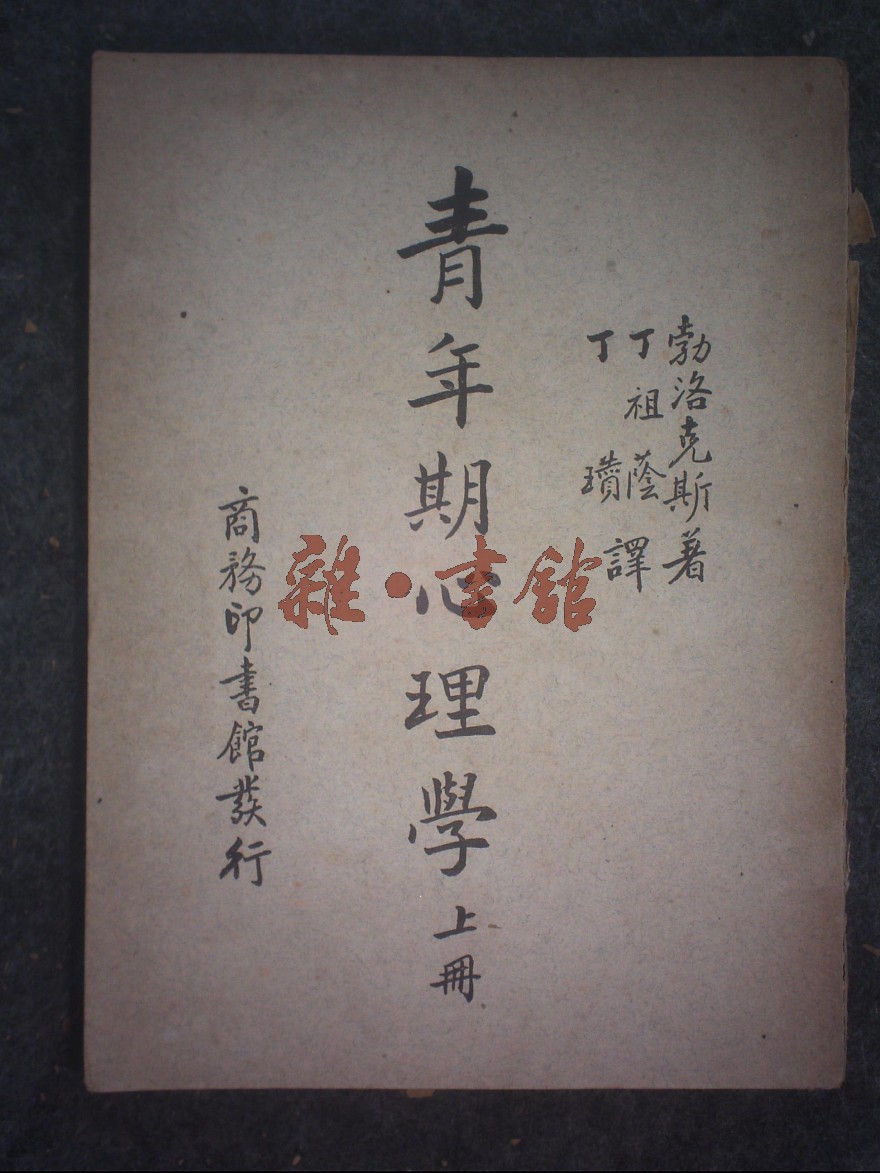 勃洛克斯著
丁祖蔭
丁瓚
譯
青年期心理學上冊
商務印書館發行
雜·書館